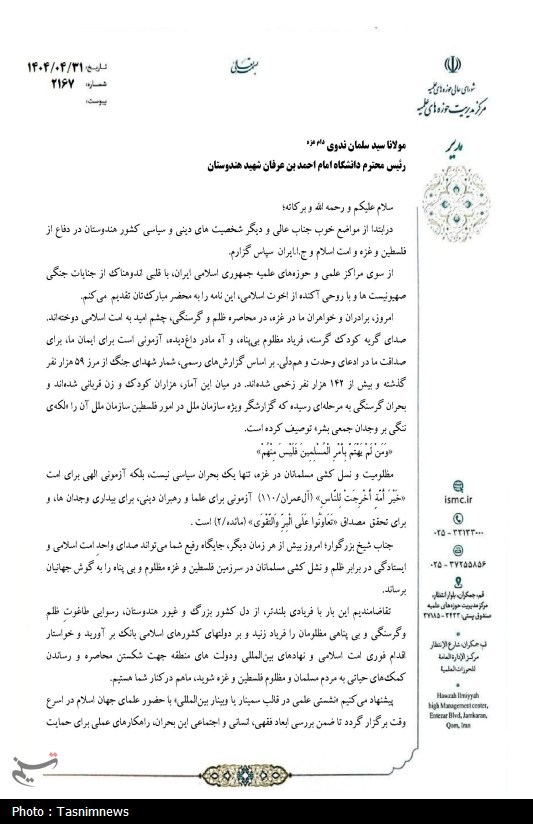 تاریخ: ۱۴۰۴/۰۴/۳۱
شماره: ۲۱۶۷
پیوست:
شورای عالی حوزه های علمیه
مرکز مدیریت حوزه های علمیه
مدیر
مولانا سید سلمان ندوی دام عزه
رئیس محترم دانشگاه امام احمد بن عرفان شهید هندوستان
سلام علیکم و رحمه الله و برکاته؛
درابتدا از مواضع خوب جناب عالی و دیگر شخصیت های دینی و سیاسی کشور هندوستان در دفاع از
فلسطین و غزه و امت اسلام و ج.ا.ایران سپاس گزارم.
از سوی مراکز علمی و حوزه‌های علمیه جمهوری اسلامی ایران، با قلبی اندوهناک از جنایات جنگی
صهیونیست ها و با روحی آکنده از اخوت اسلامی، این نامه را به محضر مبارک‌تان تقدیم می‌کنم.
امروز، برادران و خواهران ما در غزه، در محاصره ظلم و گرسنگی، چشم امید به امت اسلامی دوخته‌اند.
صدای گریه کودک گرسنه، فریاد مظلوم بی‌پناه، و آه مادر داغ‌دیده، آزمونی است برای ایمان ما، برای
صداقت ما در ادعای وحدت و هم‌دلی. بر اساس گزارش‌های رسمی، شمار شهدای جنگ از مرز ۵۹ هزار نفر
گذشته و بیش از ۱۴۲ هزار نفر زخمی شده‌اند. در میان این آمار، هزاران کودک و زن قربانی شده‌اند و
بحران گرسنگی به مرحله‌ای رسیده که گزارشگر ویژه سازمان ملل در امور فلسطین سازمان ملل آن را «لکه‌ی
ننگی بر وجدان جمعی بشر» توصیف کرده است.
«وَمَنْ لَمْ یَهْتَمْ بِأَمْرِ الْمُسْلِمِینَ فَلَیْسَ مِنْهُمْ»
مظلومیت و نسل کشی مسلمانان در غزه، تنها یک بحران سیاسی نیست، بلکه آزمونی الهی برای امت
«خَیْرَ أُمَّةٍ أُخْرِجَتْ لِلنَّاسِ» (آل‌عمران/۱۱۰) آزمونی برای علما و رهبران دینی، برای بیداری وجدان ها، و
برای تحقق مصداق «تَعَاوَنُوا عَلَى الْبِرِّ وَالتَّقْوَى» (مائده/۲) است .
جناب شیخ بزرگوار؛ امروز بیش از هر زمان دیگر، جایگاه رفیع شما می‌تواند صدای واحدِ امت اسلامی و
ایستادگی در برابر ظلم و نشل کشی مسلمانان در سرزمین فلسطین و غزه مظلوم و بی پناه را به گوش جهانیان
برساند.
تقاضامندیم این بار با فریادی بلندتر، از دل کشور بزرگ و غیور هندوستان، رسوایی طاغوتِ ظلم
وگرسنگی و بی پناهی مظلومان را فریاد زنید و بر دولتهای کشورهای اسلامی بانک بر آورید و خواستار
اقدام فوری امت اسلامی و نهادهای بین‌المللی ودولت های منطقه جهت شکستن محاصره و رساندن
کمک‌های حیاتی به مردم مسلمان و مظلوم فلسطین و غزه شوید، ماهم درکنار شما هستیم.
پیشنهاد می‌کنیم «نشستی علمی در قالب سمینار یا وبینار بین‌المللی» با حضور علمای جهان اسلام در اسرع
وقت برگزار گردد تا ضمن بررسی ابعاد فقهی، انسانی و اجتماعی این بحران، راهکارهای عملی برای حمایت
ismc.ir
۰۲۵ - ۳۲۱۳۳۰۰۰
۰۲۵ - ۳۷۲۵۵۸۵۶
قم، جمکران، بلوار انتظار،
مرکز مدیریت حوزه‌های علمیه
صندوق پستی: ۳۴۳۳ - ۳۷۱۸۵
قم، جمکران، شارع الإنتظار
مرکز الإدارة العامة
للحوزات العلمیة
Hawzah Ilmiyyah
high Management center,
Entezar Blvd, Jamkaran,
Qom, Iran
تسنیم
Photo : Tasnimnews